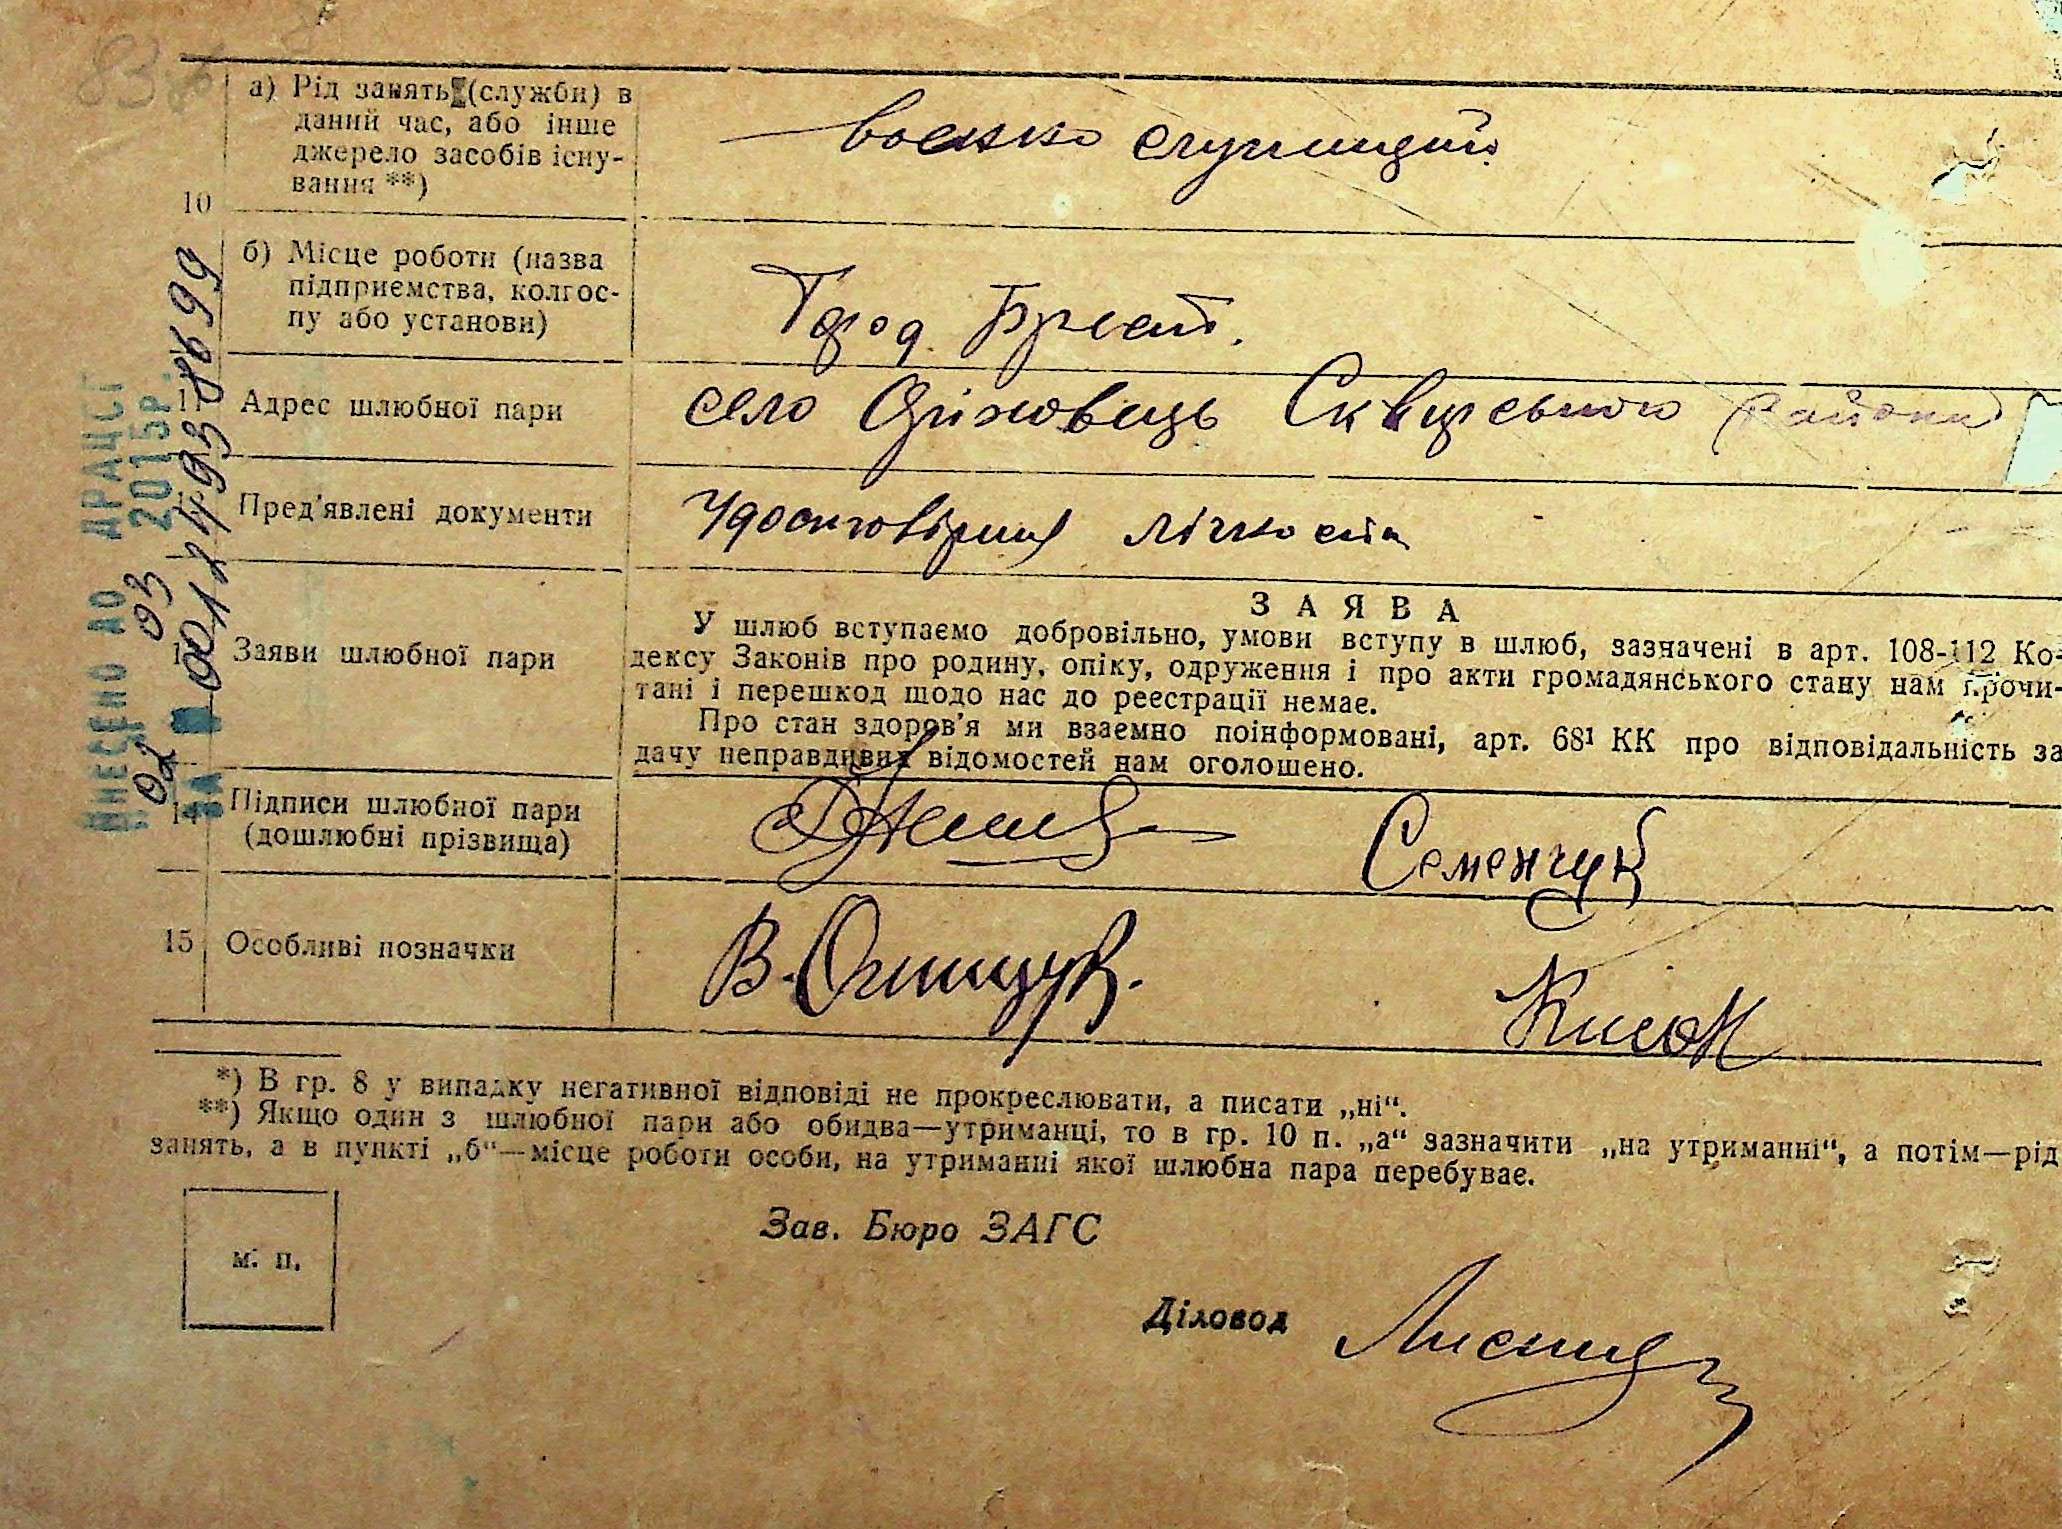 а) Рід занять (служби) в
даний час, або інше
джерело засобів існу-
вання **)
военно служищий
10
б) Місце роботи (назва
підприємства, колгос-
пу або установи)
Город Брест.
Адрес шлюбної пари
село Сквирського району
Пред'явлені документи
Удостовірння лічности
Заяви шлюбної пари
ЗАЯВА
У шлюб вступаємо добровільно, умови вступу в шлюб, зазначені в арт. 108-112 Ко-
дексу Законів про родину, опіку, одруження і про акти громадянського стану нам прочи-
тані і перешкод щодо нас до реєстрації немає.
Про стан здоров'я ми взаємно поінформовані, арт. 68¹ КК про відповідальність за
дачу неправдивих відомостей нам оголошено.
14
Підписи шлюбної пари
(дошлюбні прізвища)
Семенчук
15
Особливі позначки
В. Онищук.
*) В гр. 8 у випадку негативної відповіді не прокреслювати, а писати „ні“.
**) Якщо один з шлюбної пари або обидва—утриманці, то в гр. 10 п. „а“ зазначити „на утриманні“, а потім—рід
занять, а в пункті „б“—місце роботи особи, на утриманні якої шлюбна пара перебуває.
м. п.
Зав. Бюро ЗАГС
Діловод
ВНЕСЕНО ДО ДРАЦСГ
02 03 2015р.
ЗА № 001244938699